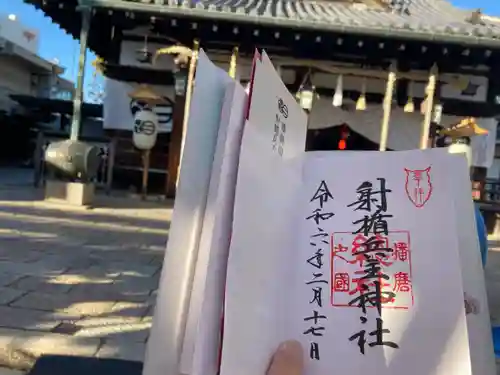 奉拝
射楯兵主神社
播磨
之國
令和六年二月十七日